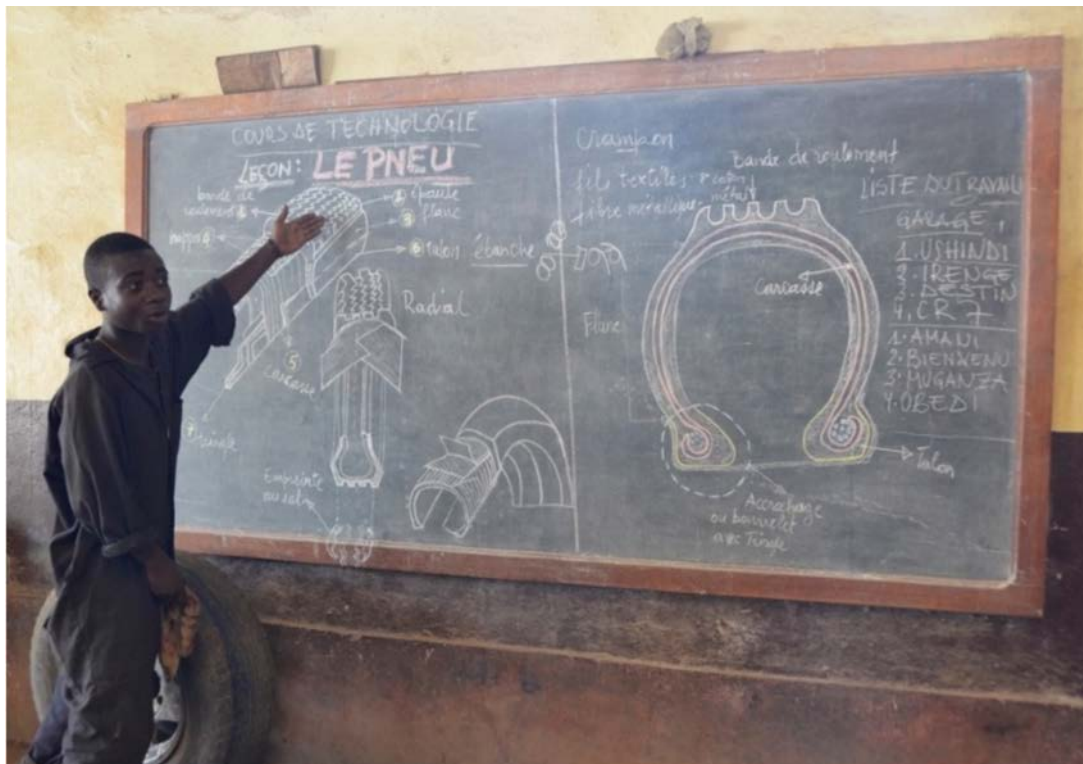 COURS DE TECHNOLOGIE
LEÇON: LE PNEU
bande de
roulement
nappe
épaule
flanc
talon étanche
Radial
5
carcasse
Tringle
Empreinte
au sol
Crampon
fils textiles:
fibre métallique
Bande de roulement
Carcasse
Flanc
Talon
Accrochage
ou bourrelet
avec Tringle
LISTE DU TRAVAIL
GARAGE
1. USHINDI
2. IRENGE
3. DESTIN
4. CR7
1. AMANI
2. BIENVENU
3. MUGANZA
4. OBEDI